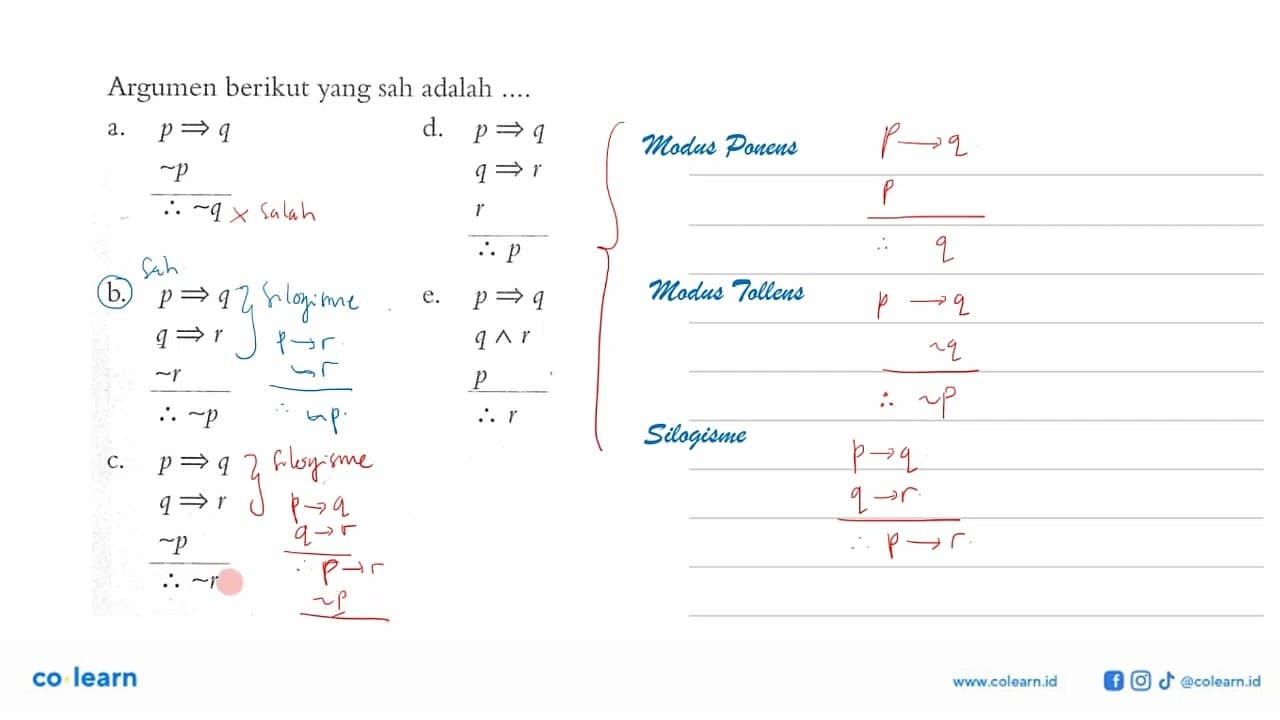 Argumen berikut yang sah adalah ....
a. p ⇒ q
~p
∴ ~q × salah
Sah
b. p ⇒ q } silogisme
q ⇒ r p → r
~r ~r
∴ ~p ∴ ~p
c. p ⇒ q } silogisme
q ⇒ r p → q
q → r
~p ∴ p → r
∴ ~r ~p
d. p ⇒ q
q ⇒ r
r
∴ p
e. p ⇒ q
q ∧ r
p
∴ r
Modus Ponens p → q
p
∴ q
Modus Tollens p → q
~q
∴ ~p
Silogisme
p → q
q → r
∴ p → r
co·learn
www.colearn.id @colearn.id